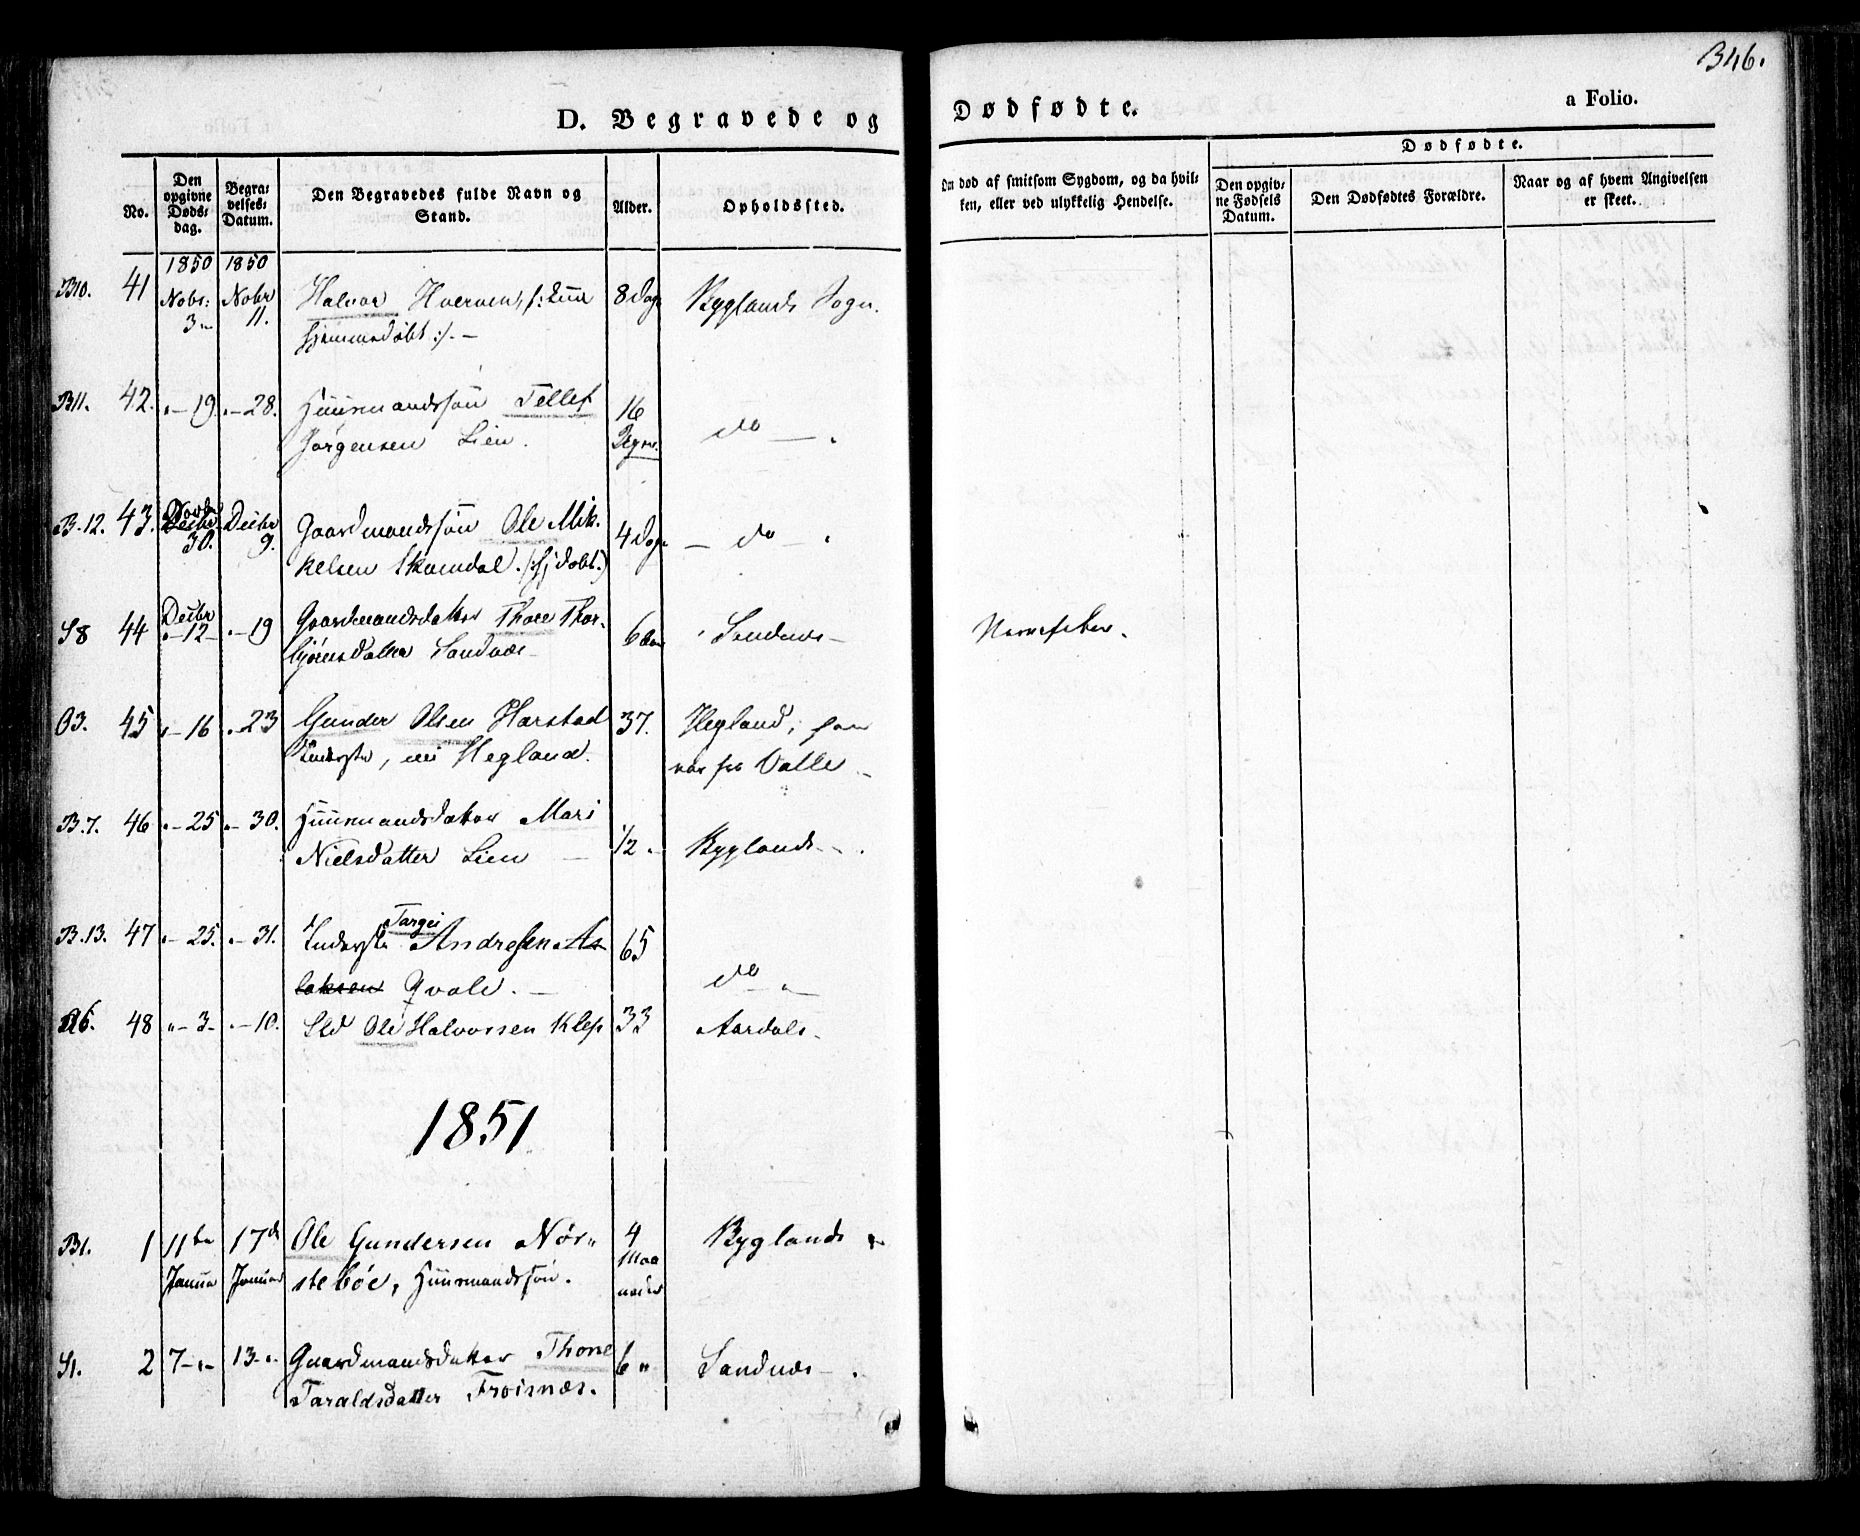 346.
D. Begravede og Dødfødte.
a Folio.
No.
Den opgivne Døds-dag.
Begra-velses-Datum.
Den Begravedes fulde Navn og Stand.
Alder.
Opholdssted.
Om død af smitsom Sygdom, og da hvil-ken, eller ved ulykkelig Hendelse.
Dødfødte.
Den opgiv-ne Fødsels Datum.
Den Dødfødtes Forældre.
Naar og af hvem Angivelsen er skeet.
1850 1850
B10. 41 Nobr: 3 Nobr 11. Halvor 8 Dage Byglands Sogn.
hjemmedøbt :/. —
B11. 42. " – 19 " – 28. Huusmandssøn Tellef 16 do — .
Jørgensen Lien. Dage.
B.12. 43. Novbr Decbr 30. Decbr 9. Gaardmandssøn Ole Mik- 4 Dage — do — "
kelsen Skomedal. (: hj døbt.)
S8 44 Decbr " – 12 – " – 19 Gaardmandsdatter Thone Thor- 6 Sandnæs – Nervefeber.
bjørnsdatter Sandnæs –
O3. 45 " – 16 " 23 Gunder Olsen Harstad 37. Hegland, han
Inderste, Hegland. var fra Valle –
B.7. 46 " – 25 " – 30. Huusmandsdatter Mari 1/2 " Byglands – .
Nielsdatter Lien —
B.13. 47 " – 25. " – 31. Inderste Targei Andresen As- 65 do "
laksen Qvale. —
A6. 48 " – 3 – " – 10. Ole Halvorsen Klep 33 Aardals –
1851
B1. 1 11te Januar 17de Januar Ole Gundersen Nør- 4 Maaneder Byglands "
stebøe, Huusmandssøn.
S1. 2 7 – " – 13 – " Gaardmandsdatter Thone 6 " Sandnæs – .
Taraldsdatter Frøisnæs.